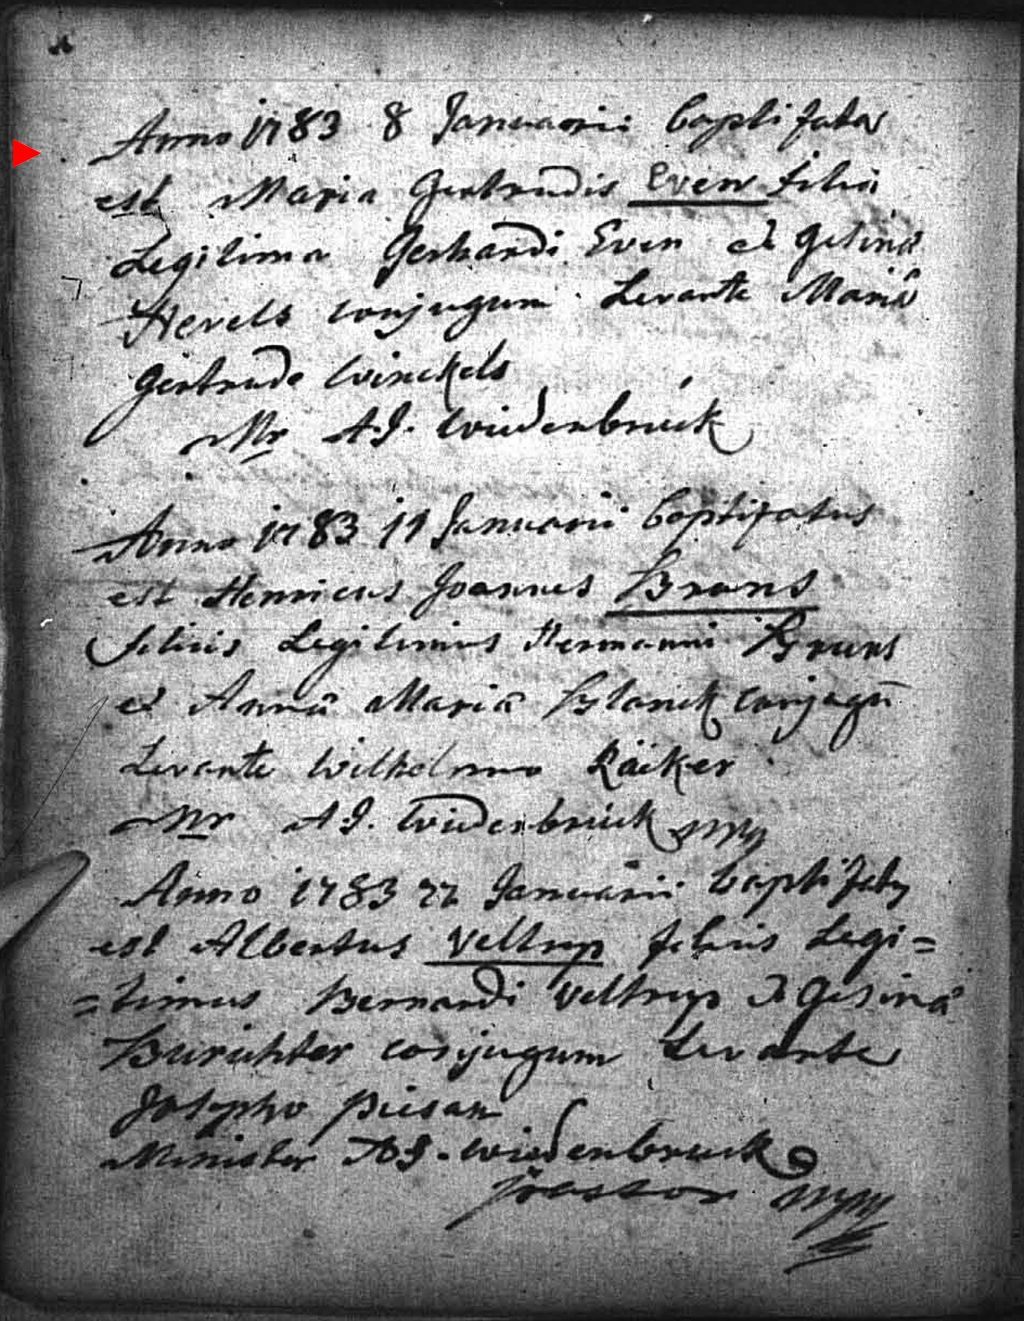 Anno 1783 8 Januarii baptisata
est Maria Gertrudis Even filia
Legitima Gerhardi Even et Gesinâ
Hevels conjugum Levante Mariâ
Gertrude Winckels
Mr A J. Wiedenbrück
Anno 1783 11 Januarii baptisatus
est Henricus Joannes Bruns
filius Legitimus Hermanni Bruns
et Annâ Mariâ Blanck conjugū
Levante Wilhelmo Räcker
Mr A J. Wiedenbrück mpp
Anno 1783 22 Januarii baptisatus
est Albertus Veltrup filius Legi=
=timus Bernardi Veltrup et Gesinâ
Burichter conjugum Levante
Josepho
Minister A J. Wiedenbruck
Pastor mpp